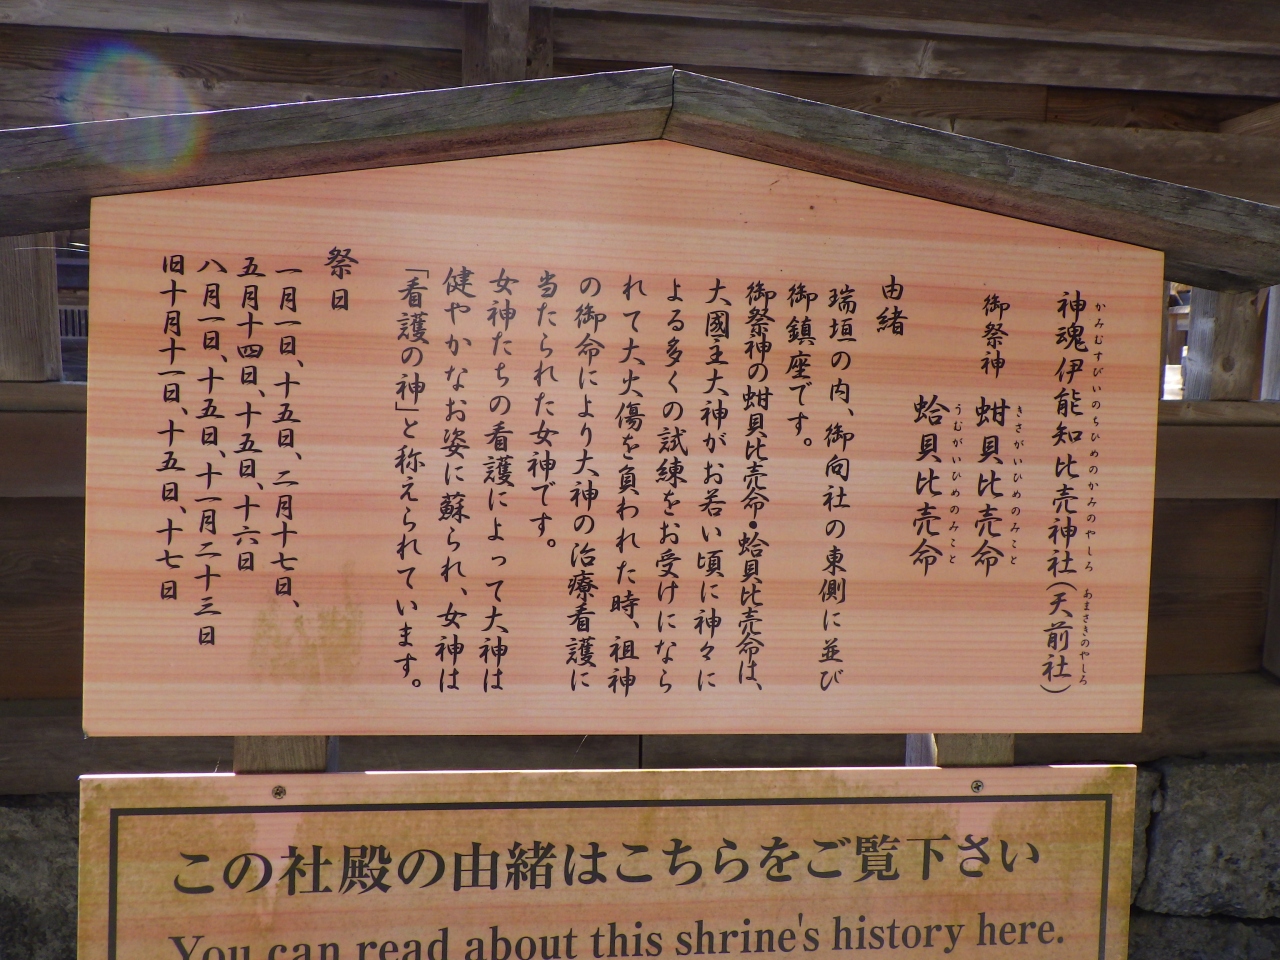 神魂伊能知比売神社（天前社）
かみむすびいのちひめのかみのやしろ　あまさきのやしろ
御祭神　蚶貝比売命
きさがいひめのみこと
蛤貝比売命
うむがいひめのみこと
由緒
瑞垣の内、御向社の東側に並び
御鎮座です。
御祭神の蚶貝比売命・蛤貝比売命は、
大國主大神がお若い頃に神々に
よる多くの試練をお受けになら
れて大火傷を負われた時、祖神
の御命により大神の治療看護に
当たられた女神です。
女神たちの看護によって大神は
健やかなお姿に蘇られ、女神は
「看護の神」と称えられています。
祭日
一月一日、十五日、二月十七日、
五月十四日、十五日、十六日
八月一日、十五日、十一月二十三日
旧十月十一日、十五日、十七日
この社殿の由緒はこちらをご覧下さい
You can read about this shrine's history here.